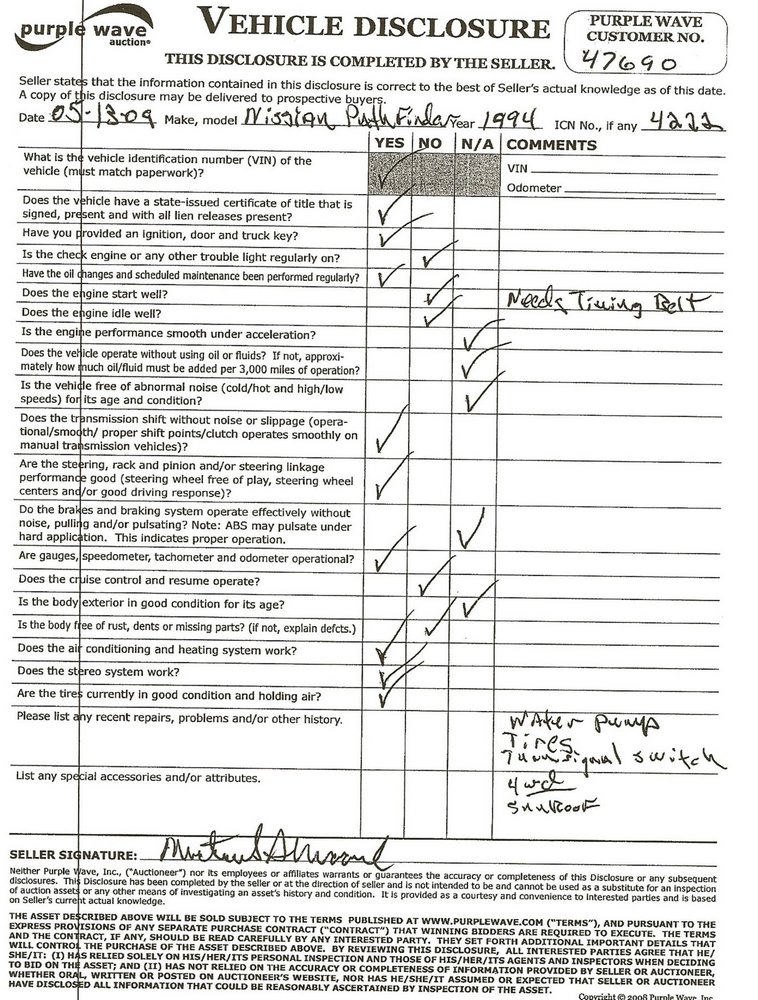 purple wave
auction®
VEHICLE DISCLOSURE
THIS DISCLOSURE IS COMPLETED BY THE SELLER.
PURPLE WAVE
CUSTOMER NO.
47690
Seller states that the information contained in this disclosure is correct to the best of Seller's actual knowledge as of this date.
A copy of this disclosure may be delivered to prospective buyers.
Date 05-13-09 Make, model Nissian Pathfinder Year 1994 ICN No., if any 4222
YES NO N/A COMMENTS
What is the vehicle identification number (VIN) of the
vehicle (must match paperwork)?
VIN
Odometer
Does the vehicle have a state-issued certificate of title that is
signed, present and with all lien releases present?
Have you provided an ignition, door and truck key?
Is the check engine or any other trouble light regularly on?
Have the oil changes and scheduled maintenance been performed regularly?
Does the engine start well? Needs Timing Belt
Does the engine idle well?
Is the engine performance smooth under acceleration?
Does the vehicle operate without using oil or fluids? If not, approxi-
mately how much oil/fluid must be added per 3,000 miles of operation?
Is the vehicle free of abnormal noise (cold/hot and high/low
speeds) for its age and condition?
Does the transmission shift without noise or slippage (opera-
tional/smooth/ proper shift points/clutch operates smoothly on
manual transmission vehicles)?
Are the steering, rack and pinion and/or steering linkage
performance good (steering wheel free of play, steering wheel
centers and/or good driving response)?
Do the brakes and braking system operate effectively without
noise, pulling and/or pulsating? Note: ABS may pulsate under
hard application. This indicates proper operation.
Are gauges, speedometer, tachometer and odometer operational?
Does the cruise control and resume operate?
Is the body exterior in good condition for its age?
Is the body free of rust, dents or missing parts? (if not, explain defcts.)
Does the air conditioning and heating system work?
Does the stereo system work?
Are the tires currently in good condition and holding air?
Please list any recent repairs, problems and/or other history.
Water pump
Tires
Turn signal switch
List any special accessories and/or attributes.
4wd
Sunroof
SELLER SIGNATURE:
Neither Purple Wave, Inc., ("Auctioneer") nor its employees or affiliates warrants or guarantees the accuracy or completeness of this Disclosure or any subsequent
disclosures. This Disclosure has been completed by the seller or at the direction of seller and is not intended to be and cannot be used as a substitute for an inspection
of auction assets or any other means of investigating an asset's history and condition. It is provided as a courtesy and convenience to interested parties and is based
on Seller's current actual knowledge.
THE ASSET DESCRIBED ABOVE WILL BE SOLD SUBJECT TO THE TERMS PUBLISHED AT WWW.PURPLEWAVE.COM ("TERMS"), AND PURSUANT TO THE
EXPRESS PROVISIONS OF ANY SEPARATE PURCHASE CONTRACT ("CONTRACT") THAT WINNING BIDDERS ARE REQUIRED TO EXECUTE. THE TERMS
AND THE CONTRACT, IF ANY, SHOULD BE READ CAREFULLY BY ANY INTERESTED PARTY. THEY SET FORTH ADDITIONAL IMPORTANT DETAILS THAT
WILL CONTROL THE PURCHASE OF THE ASSET DESCRIBED ABOVE. BY REVIEWING THIS DISCLOSURE, ALL INTERESTED PARTIES AGREE THAT HE/
SHE/IT: (I) HAS RELIED SOLELY ON HIS/HER/ITS PERSONAL INSPECTION AND THOSE OF HIS/HER/ITS AGENTS AND INSPECTORS WHEN DECIDING
TO BID ON THE ASSET; AND (II) HAS NOT RELIED ON THE ACCURACY OR COMPLETENESS OF INFORMATION PROVIDED BY SELLER OR AUCTIONEER,
WHETHER ORAL, WRITTEN OR POSTED ON AUCTIONEER'S WEBSITE, NOR HAS HE/SHE/IT ASSUMED OR EXPECTED THAT SELLER OR AUCTIONEER
HAVE DISCLOSED ALL INFORMATION THAT COULD BE REASONABLY ASCERTAINED BY INSPECTION OF THE ASSET.
Copyright © 2008 Purple Wave, Inc.